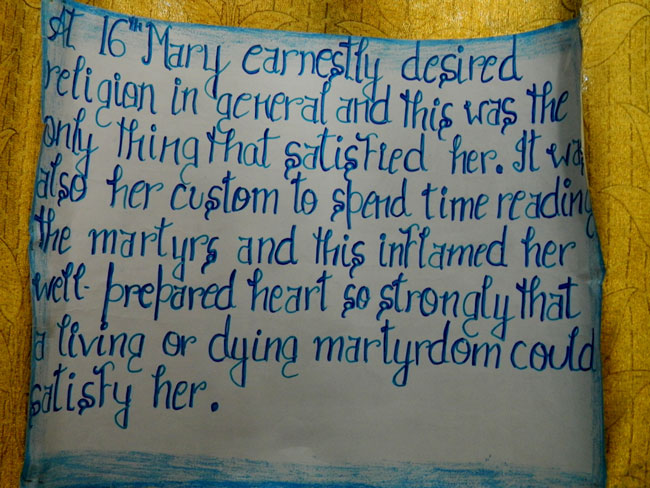 At 16th Mary earnestly desired
religion in general and this was the
only thing that satisfied her. It was
also her custom to spend time reading
the martyrs and this inflamed her
well-prepared heart so strongly that
a living or dying martyrdom could
satisfy her.